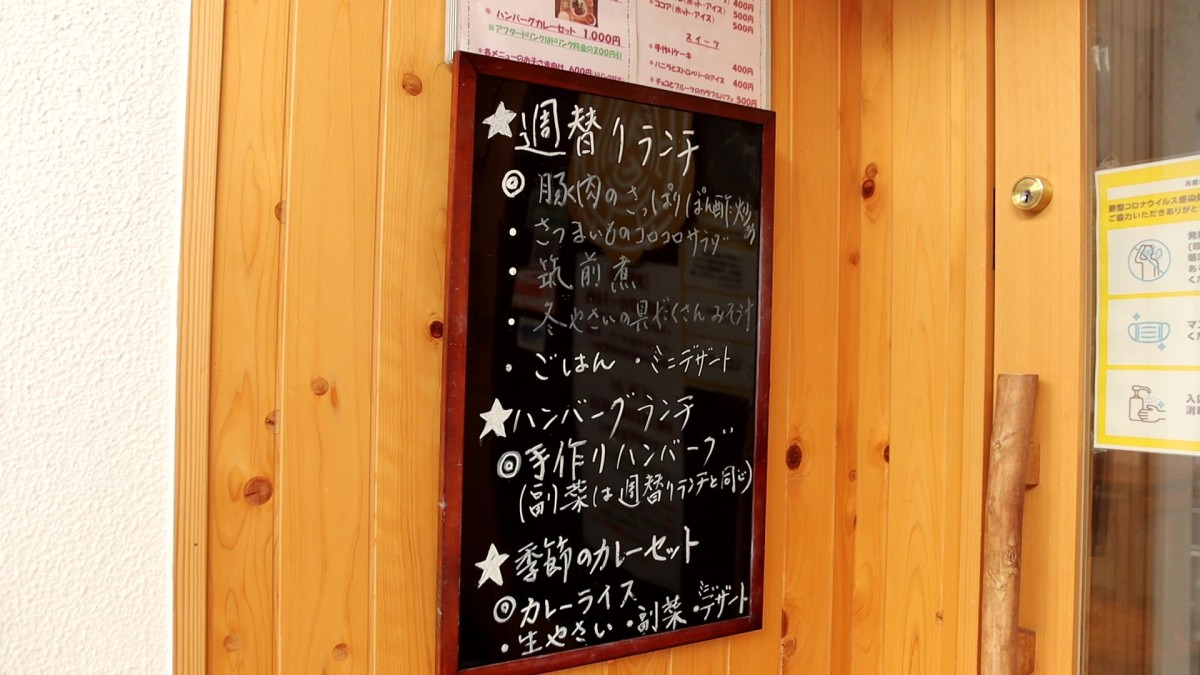 ※ハンバーグカレーセット 1,000円
※アフタードリンクはドリンク料金の200円引
※各メニューのお子さま向は 600円
400円
ココア(ホット・アイス) 500円
500円
スイーツ
※手作りケーキ 400円
※バニラとストロベリーのアイス 400円
※チョコとフルーツのカラフルパフェ 500円
★週替りランチ
◎豚肉のさっぱりぽん酢炒め
・さつまいものコロコロサラダ
・筑前煮
・冬やさいの具だくさんみそ汁
・ごはん ・ミニデザート
★ハンバーグランチ
◎手作りハンバーグ
(副菜は週替りランチと同じ)
★季節のカレーセット
◎カレーライス
・生やさい・副菜・ミニデザート
新型コロナウイルス感染
ご協力いただきありがと